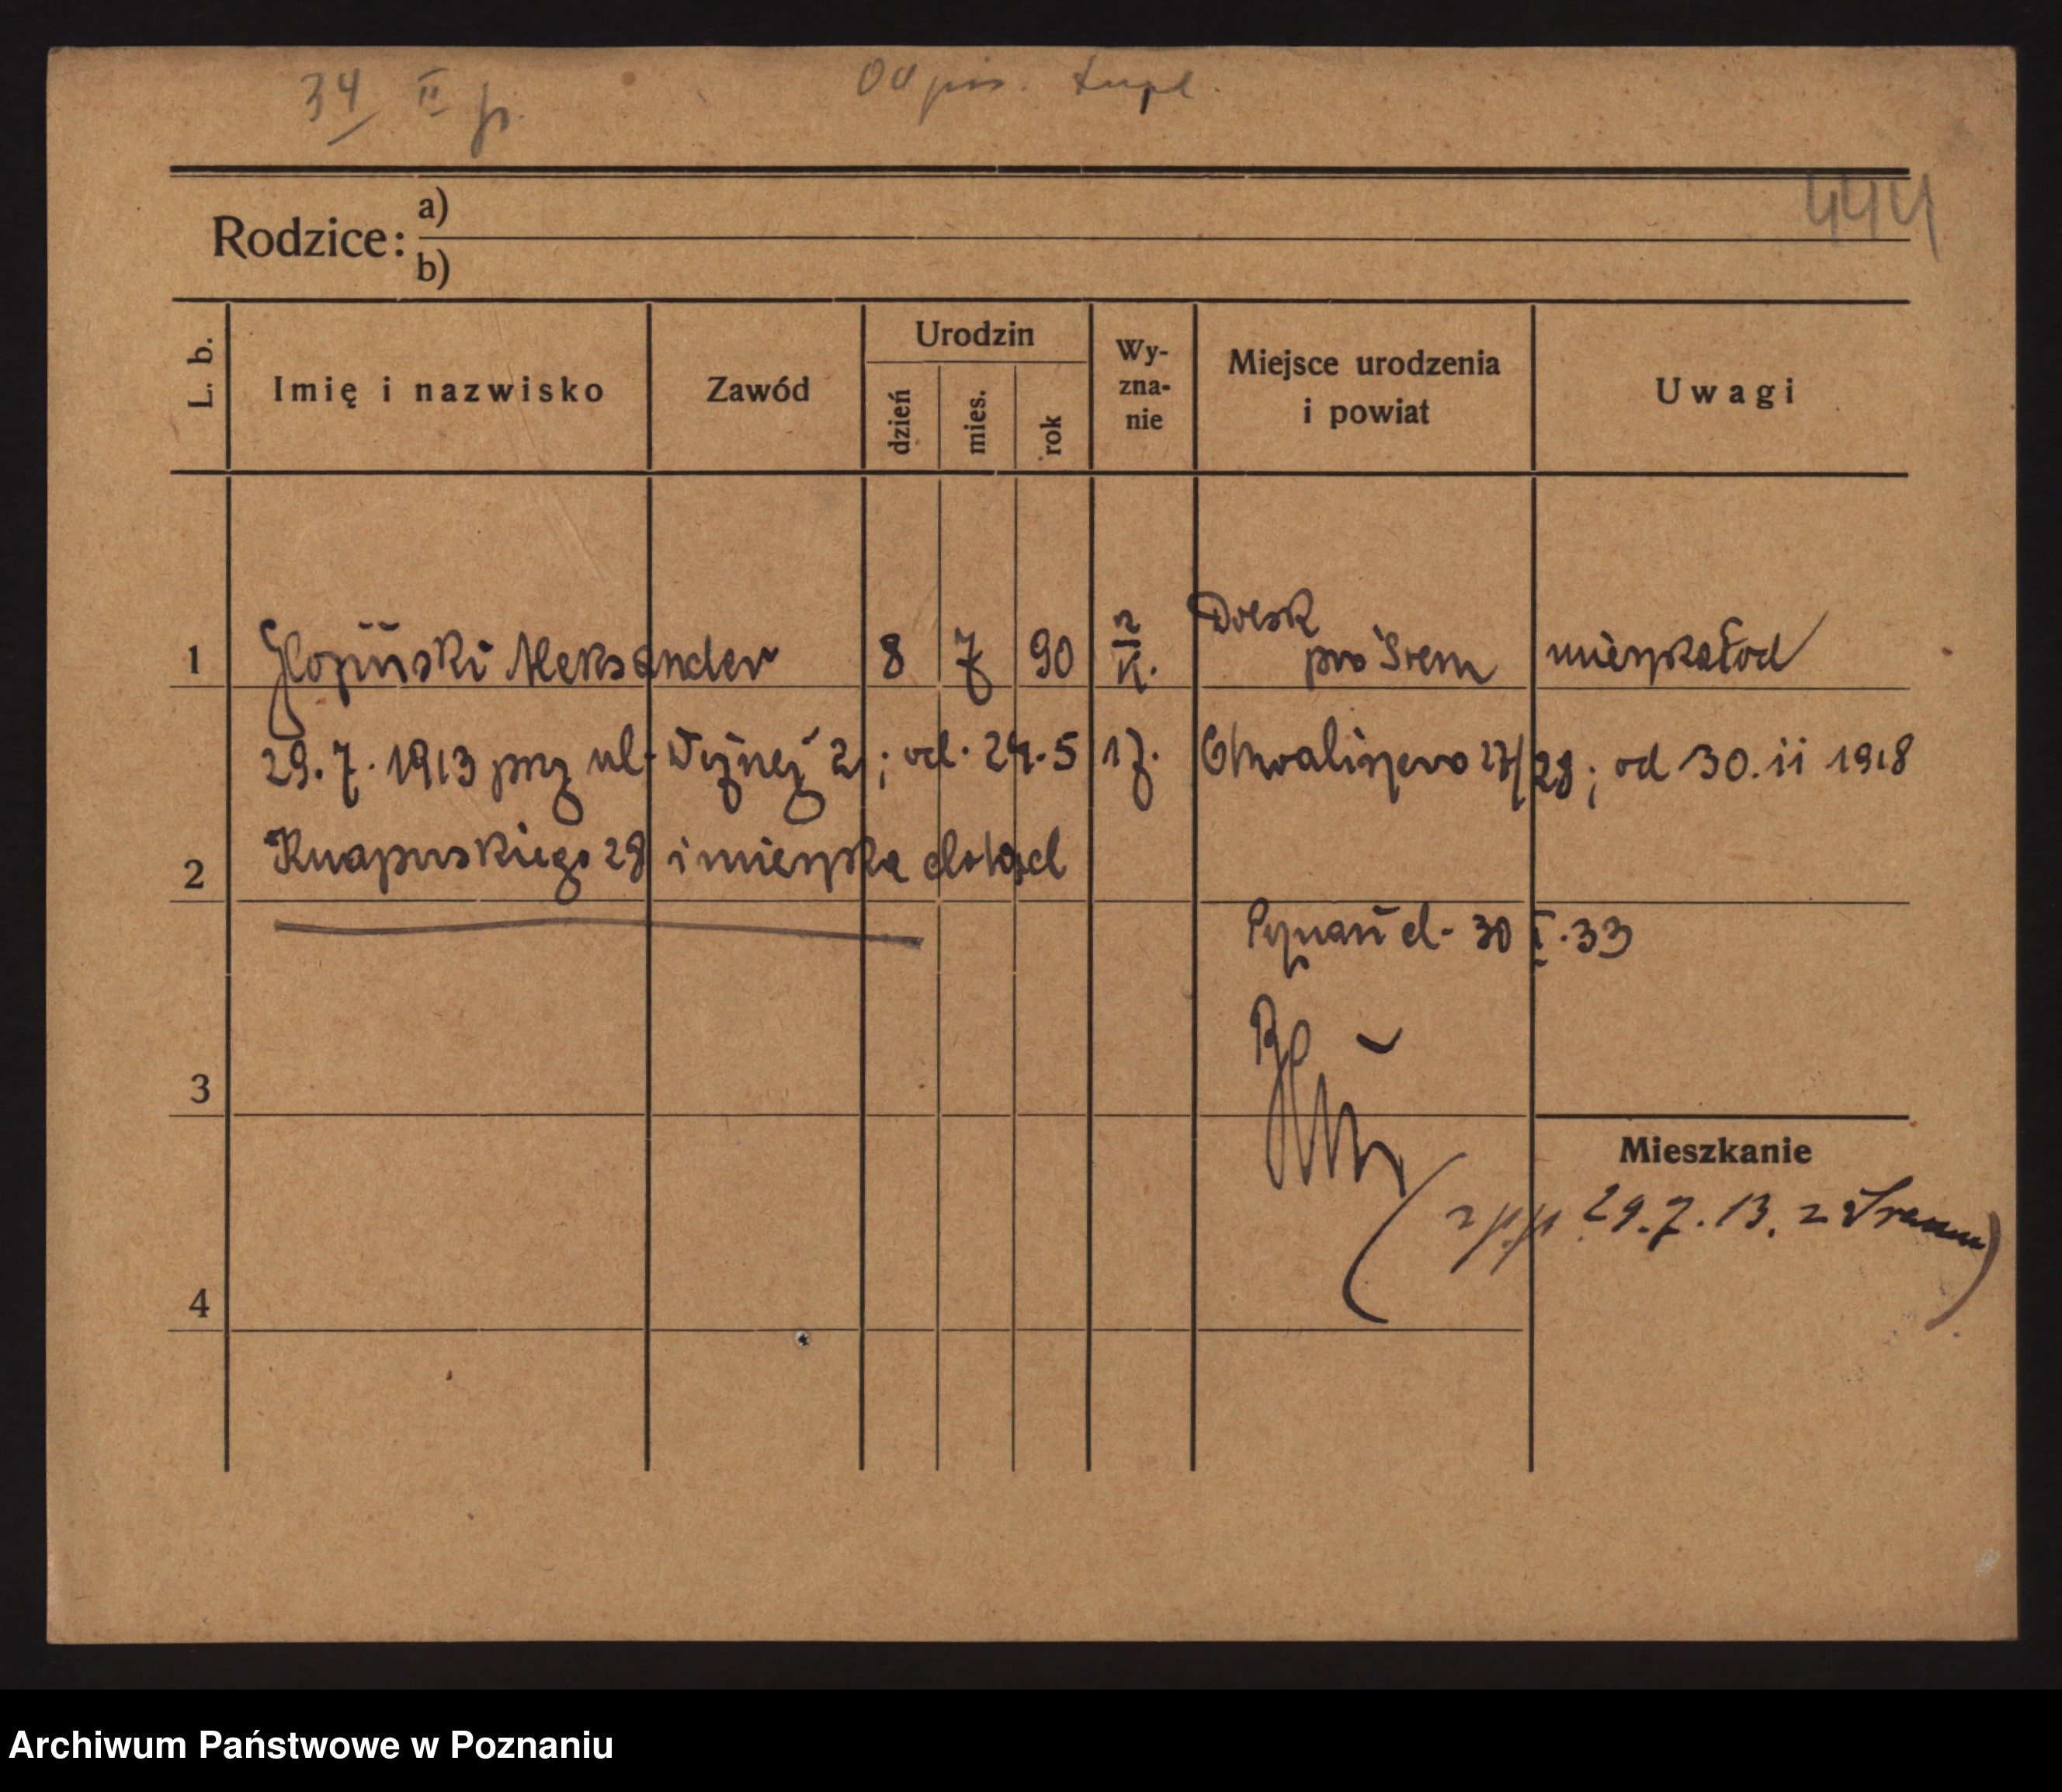 34 II p.
Odpis. dupl.
444
Rodzice: a)
b)
L. b.
Imię i nazwisko
Zawód
Urodzin
dzień
mies.
rok
Wy-
zna-
nie
Miejsce urodzenia
i powiat
Uwagi
Dolsk
1 Aleksander 8 7 90 pow Śrem mieszkał od
29.7.1913 przy ul. 2; od. 24.5 17. Chwaliszewo 27/28; od 30.11 1918
2 Knapowskiego 28 i mieszka dotąd
Poznań d. 30 I.33
3
Mieszkanie
(z pp. 29.7.13. z Śremu)
4
Archiwum Państwowe w Poznaniu